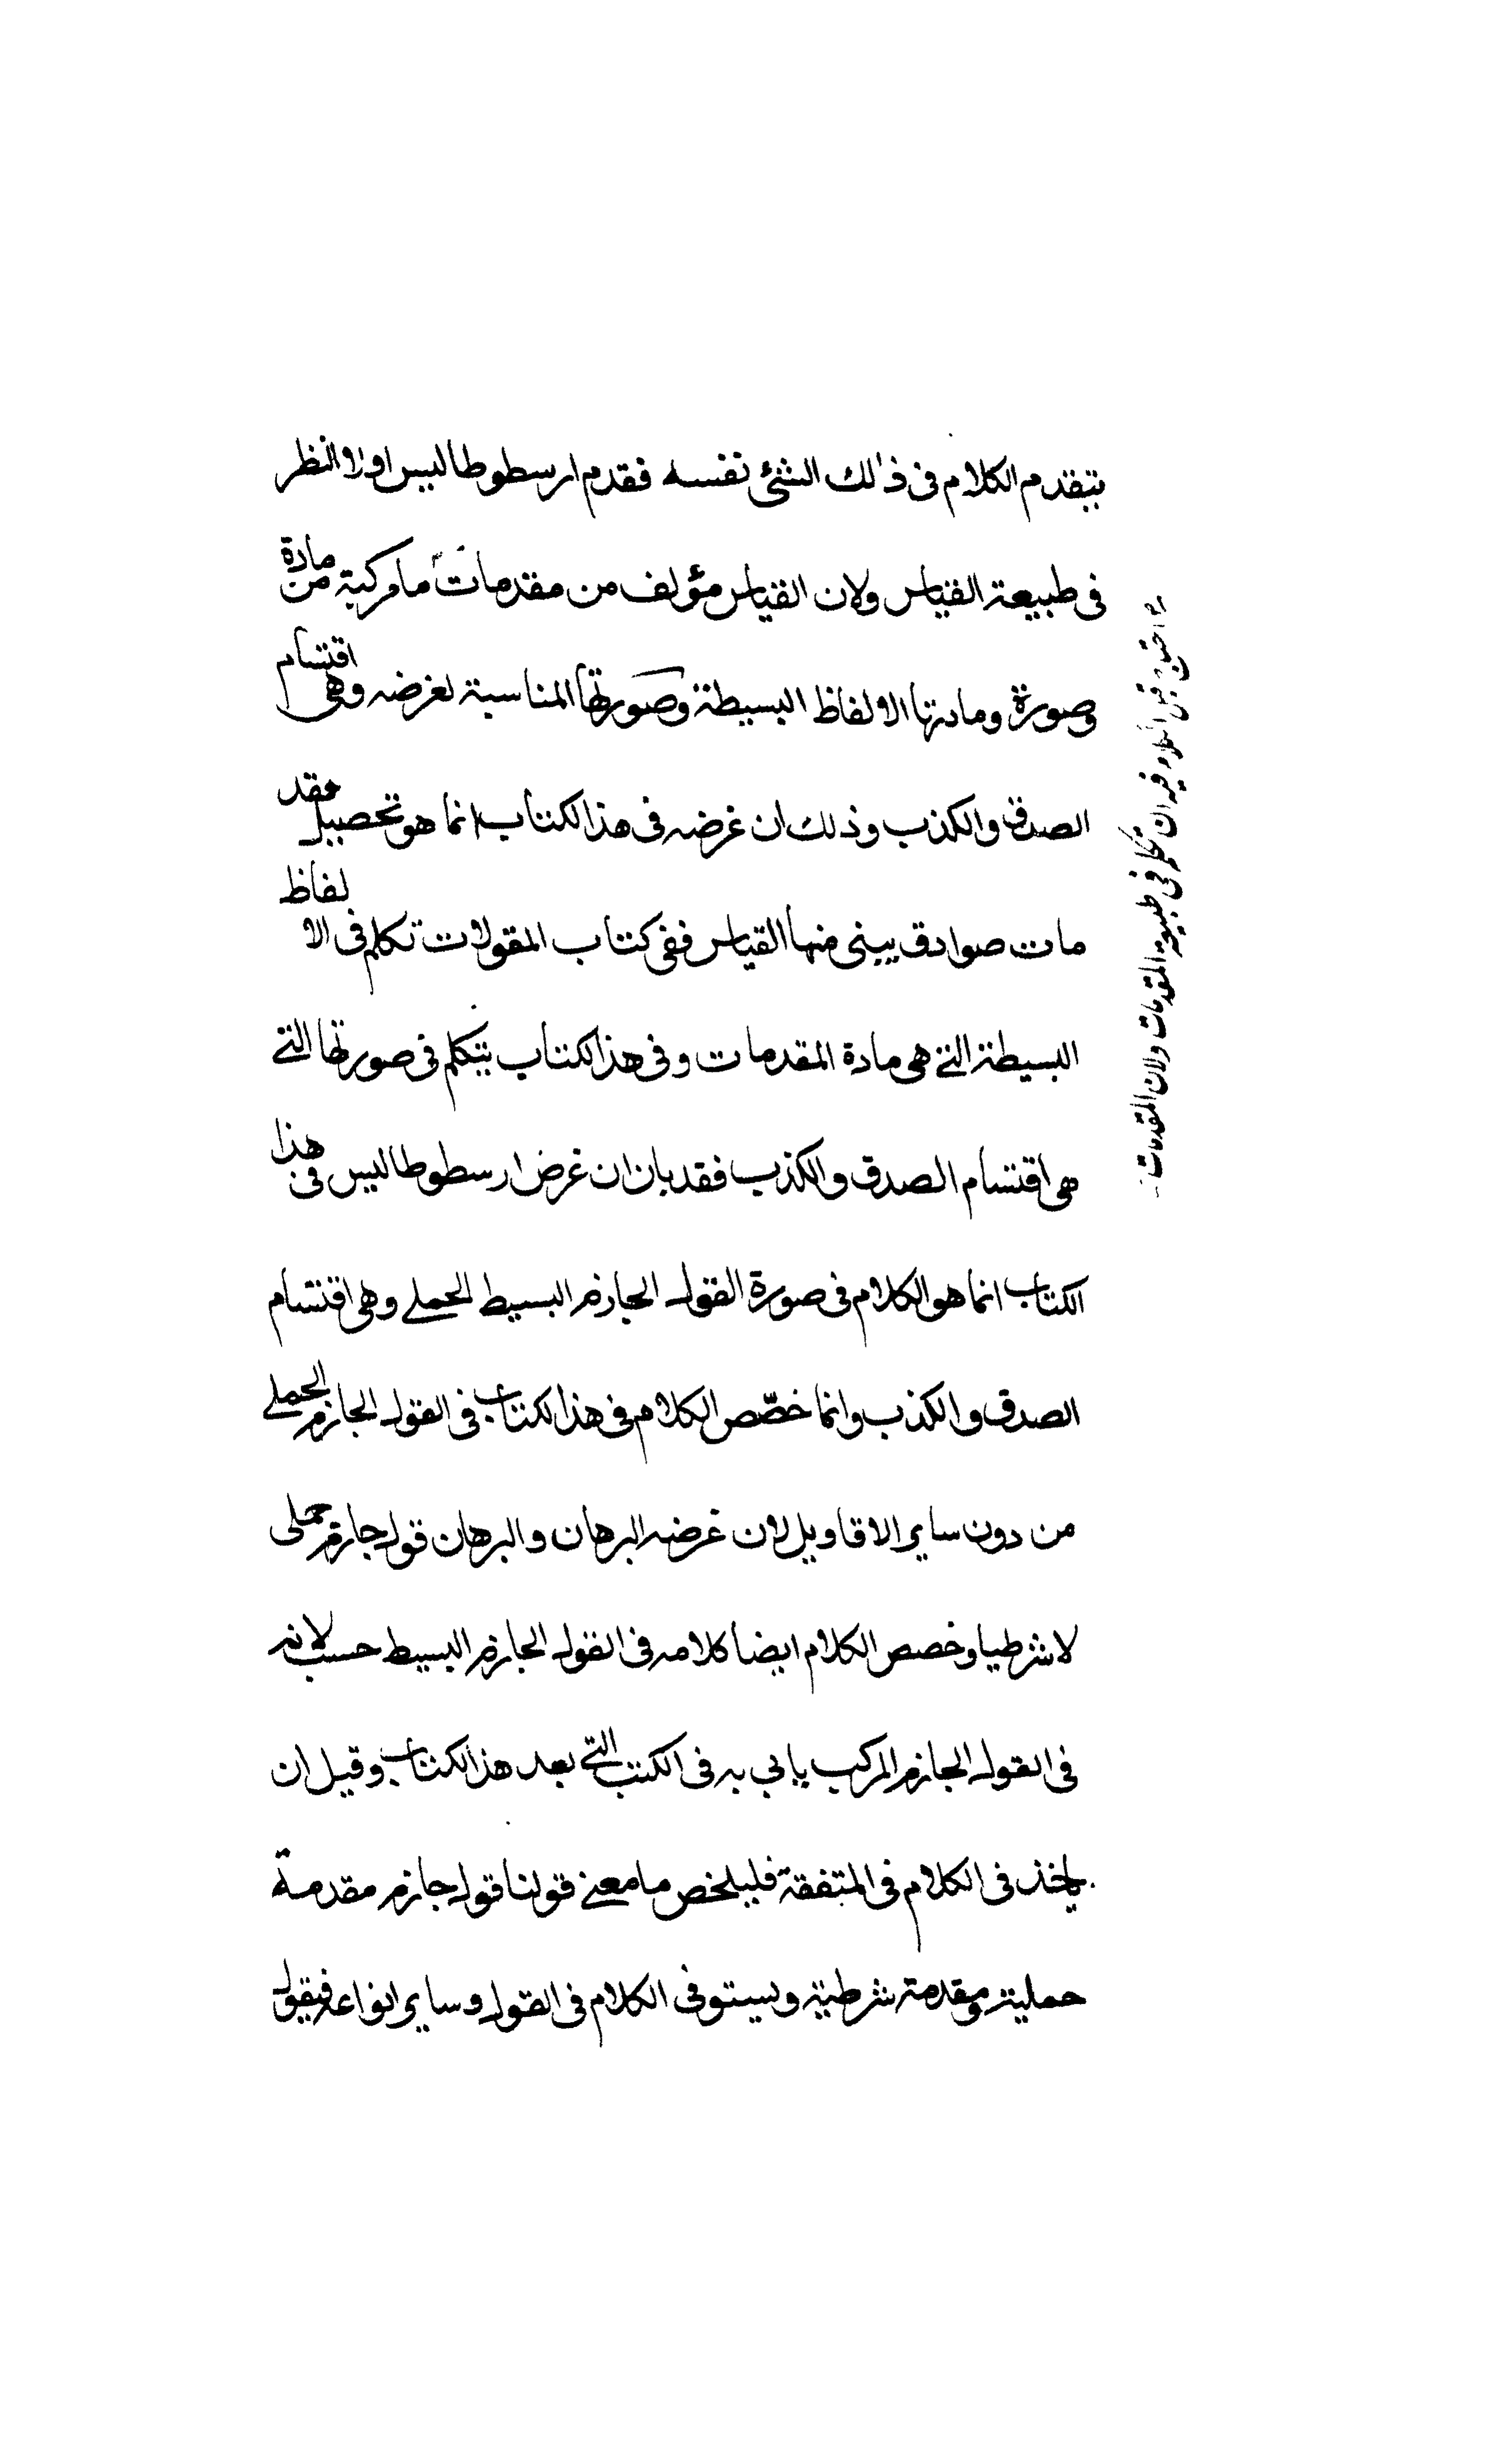 يتقدم الكلام فى ذلك الشئ نفسه فقدم ارسطوطاليس اولا النظر
فى طبيعة القياس ولان القياس مؤلف من مقدمات ما مركبة من مادة
وصورة ومادتها الالفاظ البسيطة وصورتها المناسبة لغرضه وهى اقتسام
الصدق والكذب وذلك ان غرضه فى هذا الكتاب انما هو تحصيل مقد
مات صوادق يبنى منها القياس ففى كتاب المقولات تكلم فى الا لفاظ
البسيطة التى هى مادة المقدمات وفى هذا الكتاب يتكلم فى صورتها التى
هى اقتسام الصدق والكذب فقد بان ان غرض ارسطوطاليس فى هذا
الكتاب انما هو الكلام فى صورة القول الجازم البسيط الحملى وهى اقتسام
الصدق والكذب وانما خصّص الكلام فى هذا الكتاب فى القول الجازم الحملى
من دون ساير الاقاويل لان غرضه البرهان والبرهان قول جازم حملى
لا شرطيا وخصص الكلام ايضا كلامه فى القول الجازم البسيط حسب لانه
فى القول الجازم المركب ياتى به فى الكتب التى بعد هذا الكتاب وقبل ان
ياخذ فى الكلام فى المتفقة فليلخص ما معنى قولنا قول جازم مقدمة
حملية ومقدمة شرطية ويستوفى الكلام فى القول وساير انواعه فيقول
احتاج قبل الكلام فيه ان تكلم فى طبيعة المقدمات ولان المقدمات